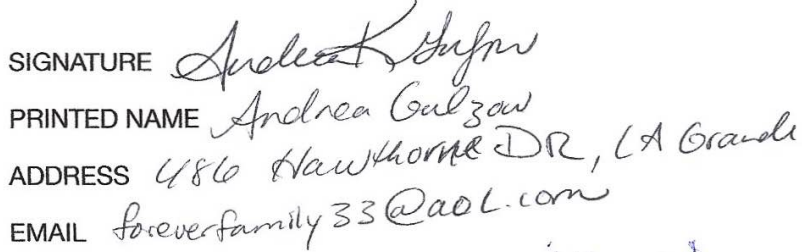 SIGNATURE Andrea K
PRINTED NAME Andrea Gulzow
ADDRESS 486 Hawthorne DR, LA Grande
EMAIL foreverfamily33@aol.com